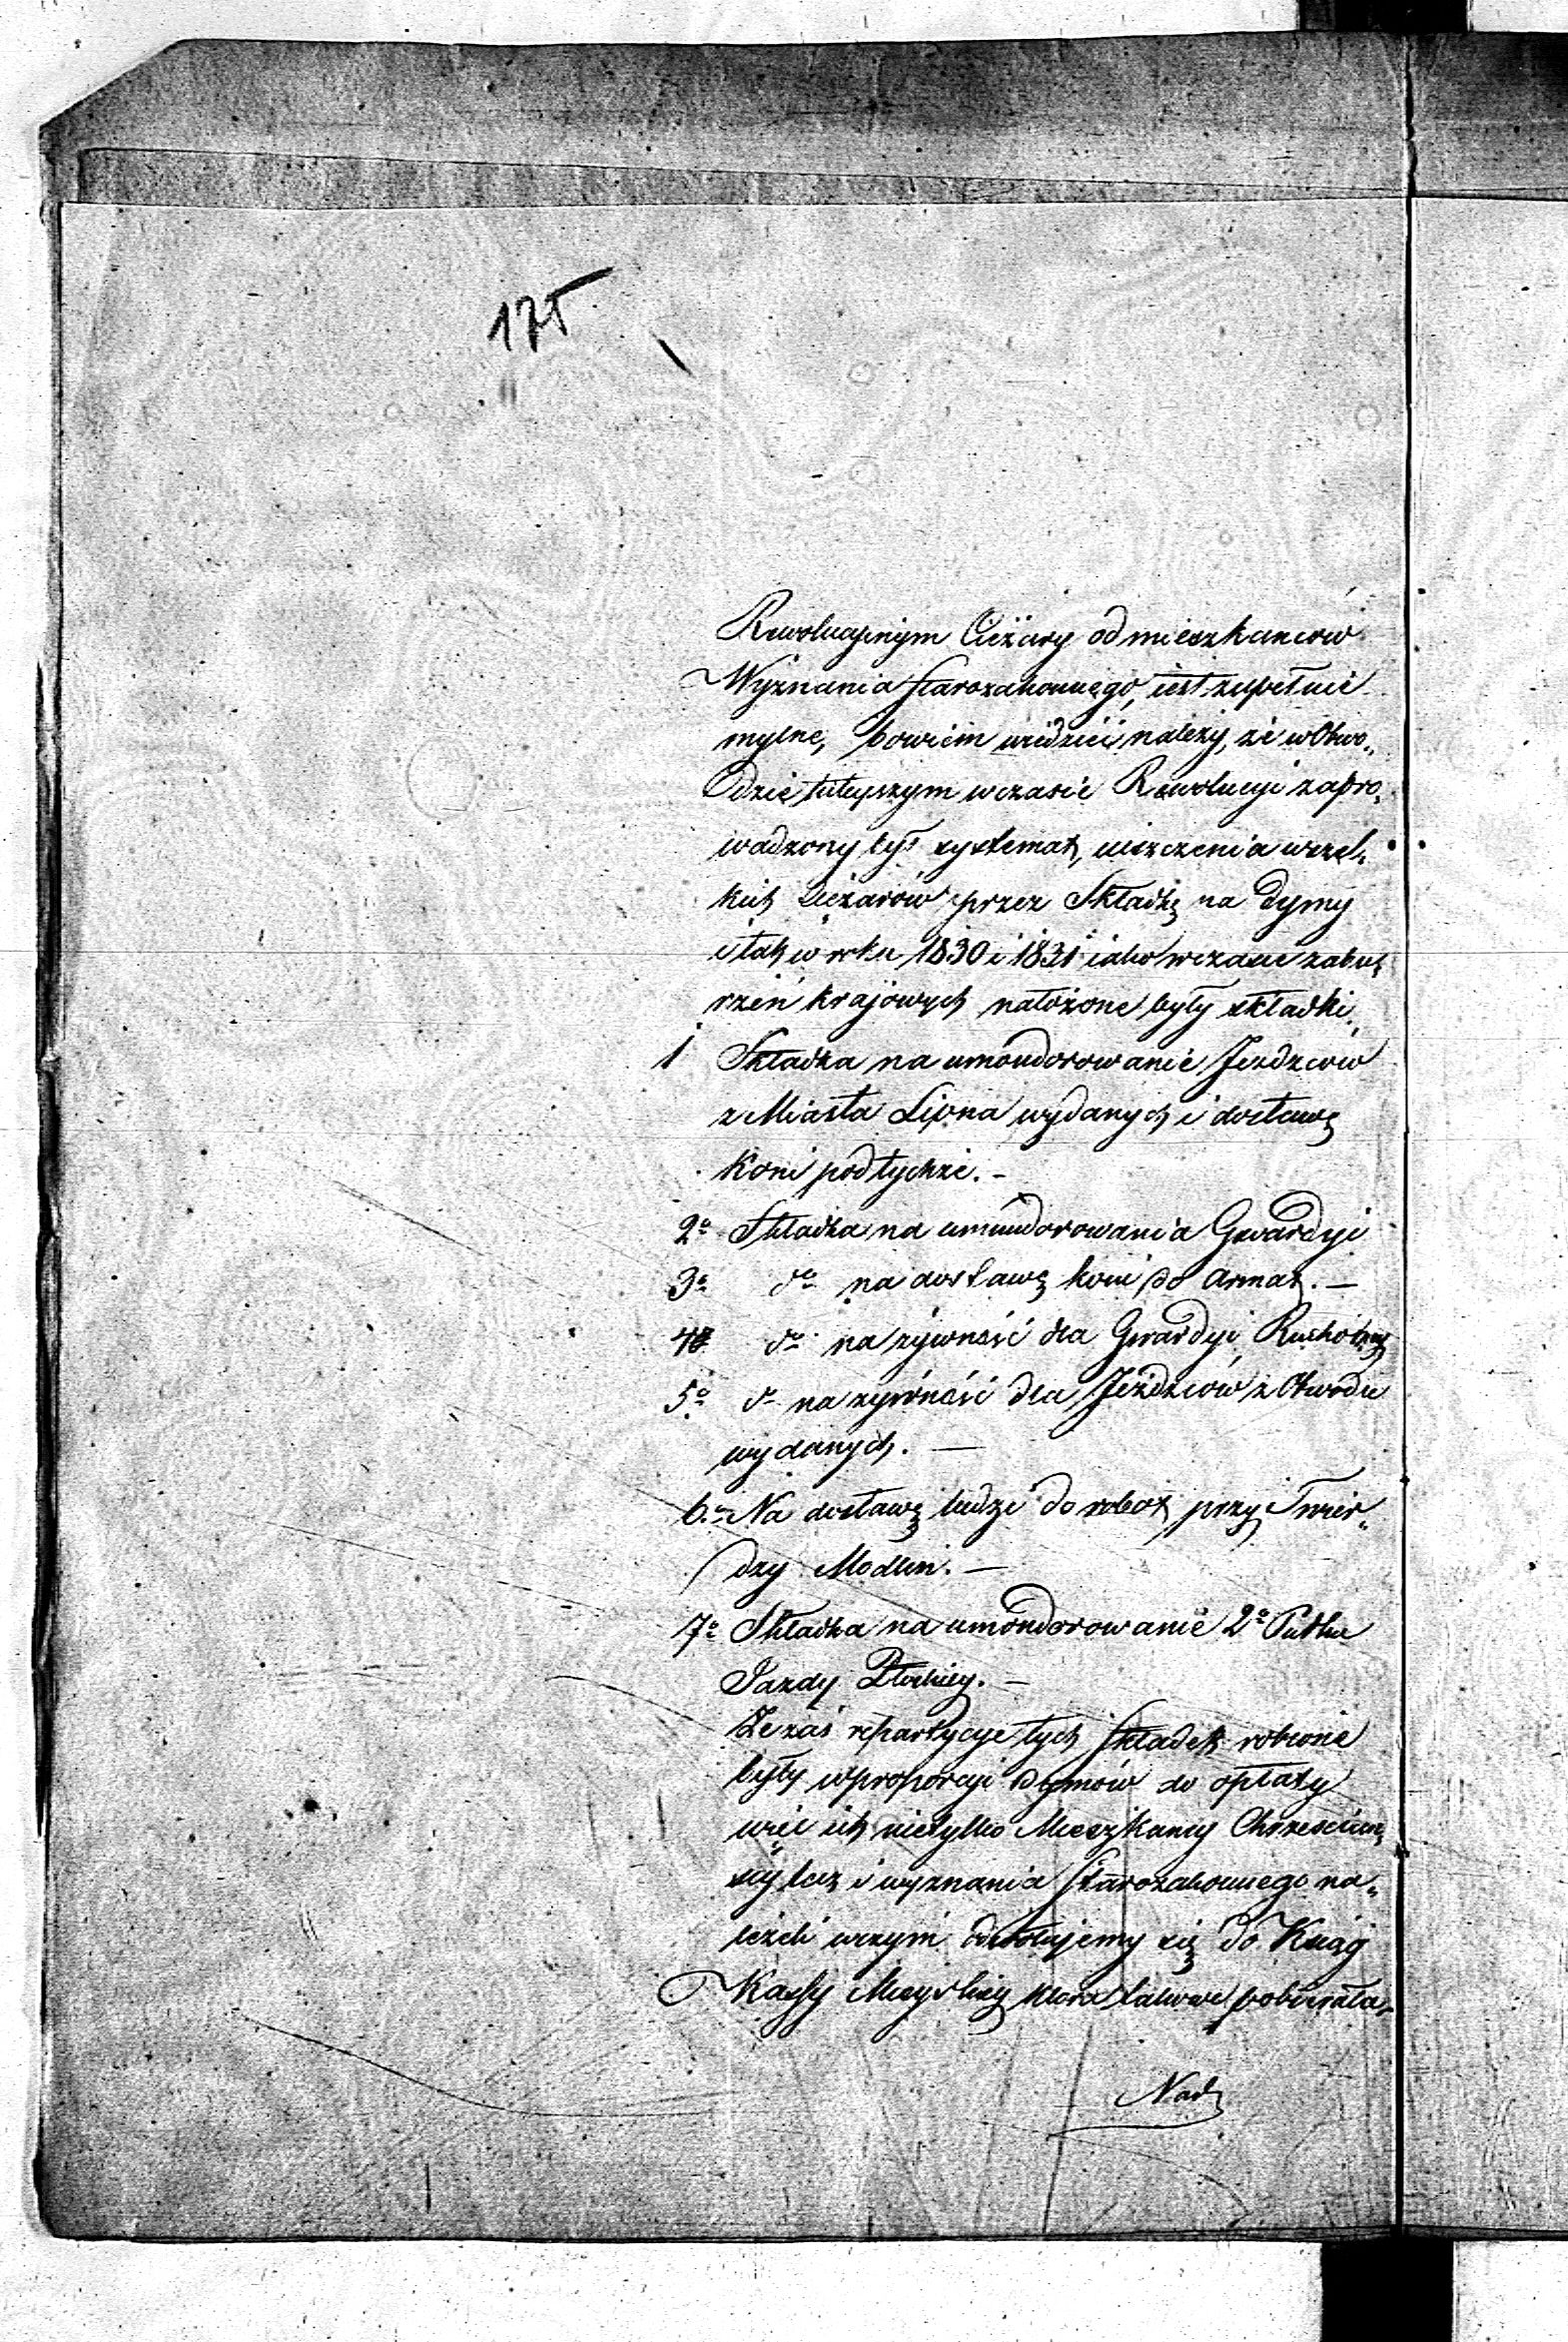 175
Rewolucyinym Ciężary od mieszkancow
Wyznania Starozakonnego, iest zupełnie
mylne, bowiem wiedzieć należy, że w Obwo„
dzie tuteyszym w czasie Rewolucyi zapro„
wadzony był systemat, uiszczenia wszel„
kich Ciężarów przez Składkę na dymy
i tak w roku 1830 i 1831 iako w czasie zabu„
rzeń krajowych nałożone były składki.
1 Składka na umondorowanie Jezdzców
z Miasta Lipna wydanych i dostawę
koni pod tychże. –
2º Składka na umundorowania Gwardyi
3º dº na dostawę koni do armat. –
4º dº na żywność dla Gwardyi Ruchomey
5º dº na żywność dla Jeźdzców z Obwodu
wydanych. –
6º Na dostawę ludzi do robot przy Twier„
dzy Modlin. –
7º Składka na umondorowanie 2º Pułku
Jazdy Płockiey. –
Że zaś repartycye tych składek robione
były w proporcyi dymów do opłaty
więc ich nietylko Mieszkancy Chrzescian„
scy lecz i wyznania Starozakonnego na„
leżeli w czym odwołujemy się do Ksiąg
Kassy Mieyskiey która takowe pobierała.
Nad